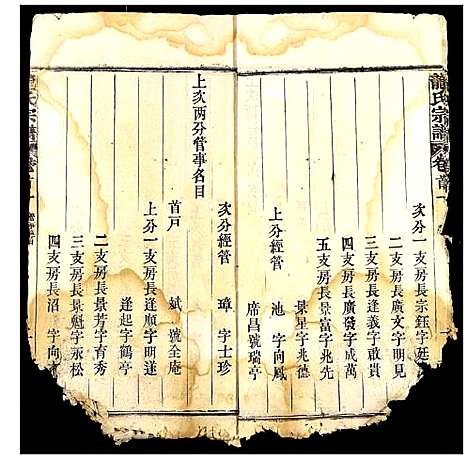 龍氏宗譜 卷首
次分一支房長宗鈺字
二支房長廣文字明見
三支房長逢義字敢貴
四支房長廣發字成萬
五支房長景富字兆先
景星字兆德
上分經管 池 字向鳳
席昌號瑞亭
次分經管 璋 字士珍
上次两分管事名目
首戸 斌 號全庵
上分一支房長逢順字明遂
逢起字鶴亭
二支房長景芳字育秀
三支房長景魁字永松
四支房長沼 字向
氏宗譜